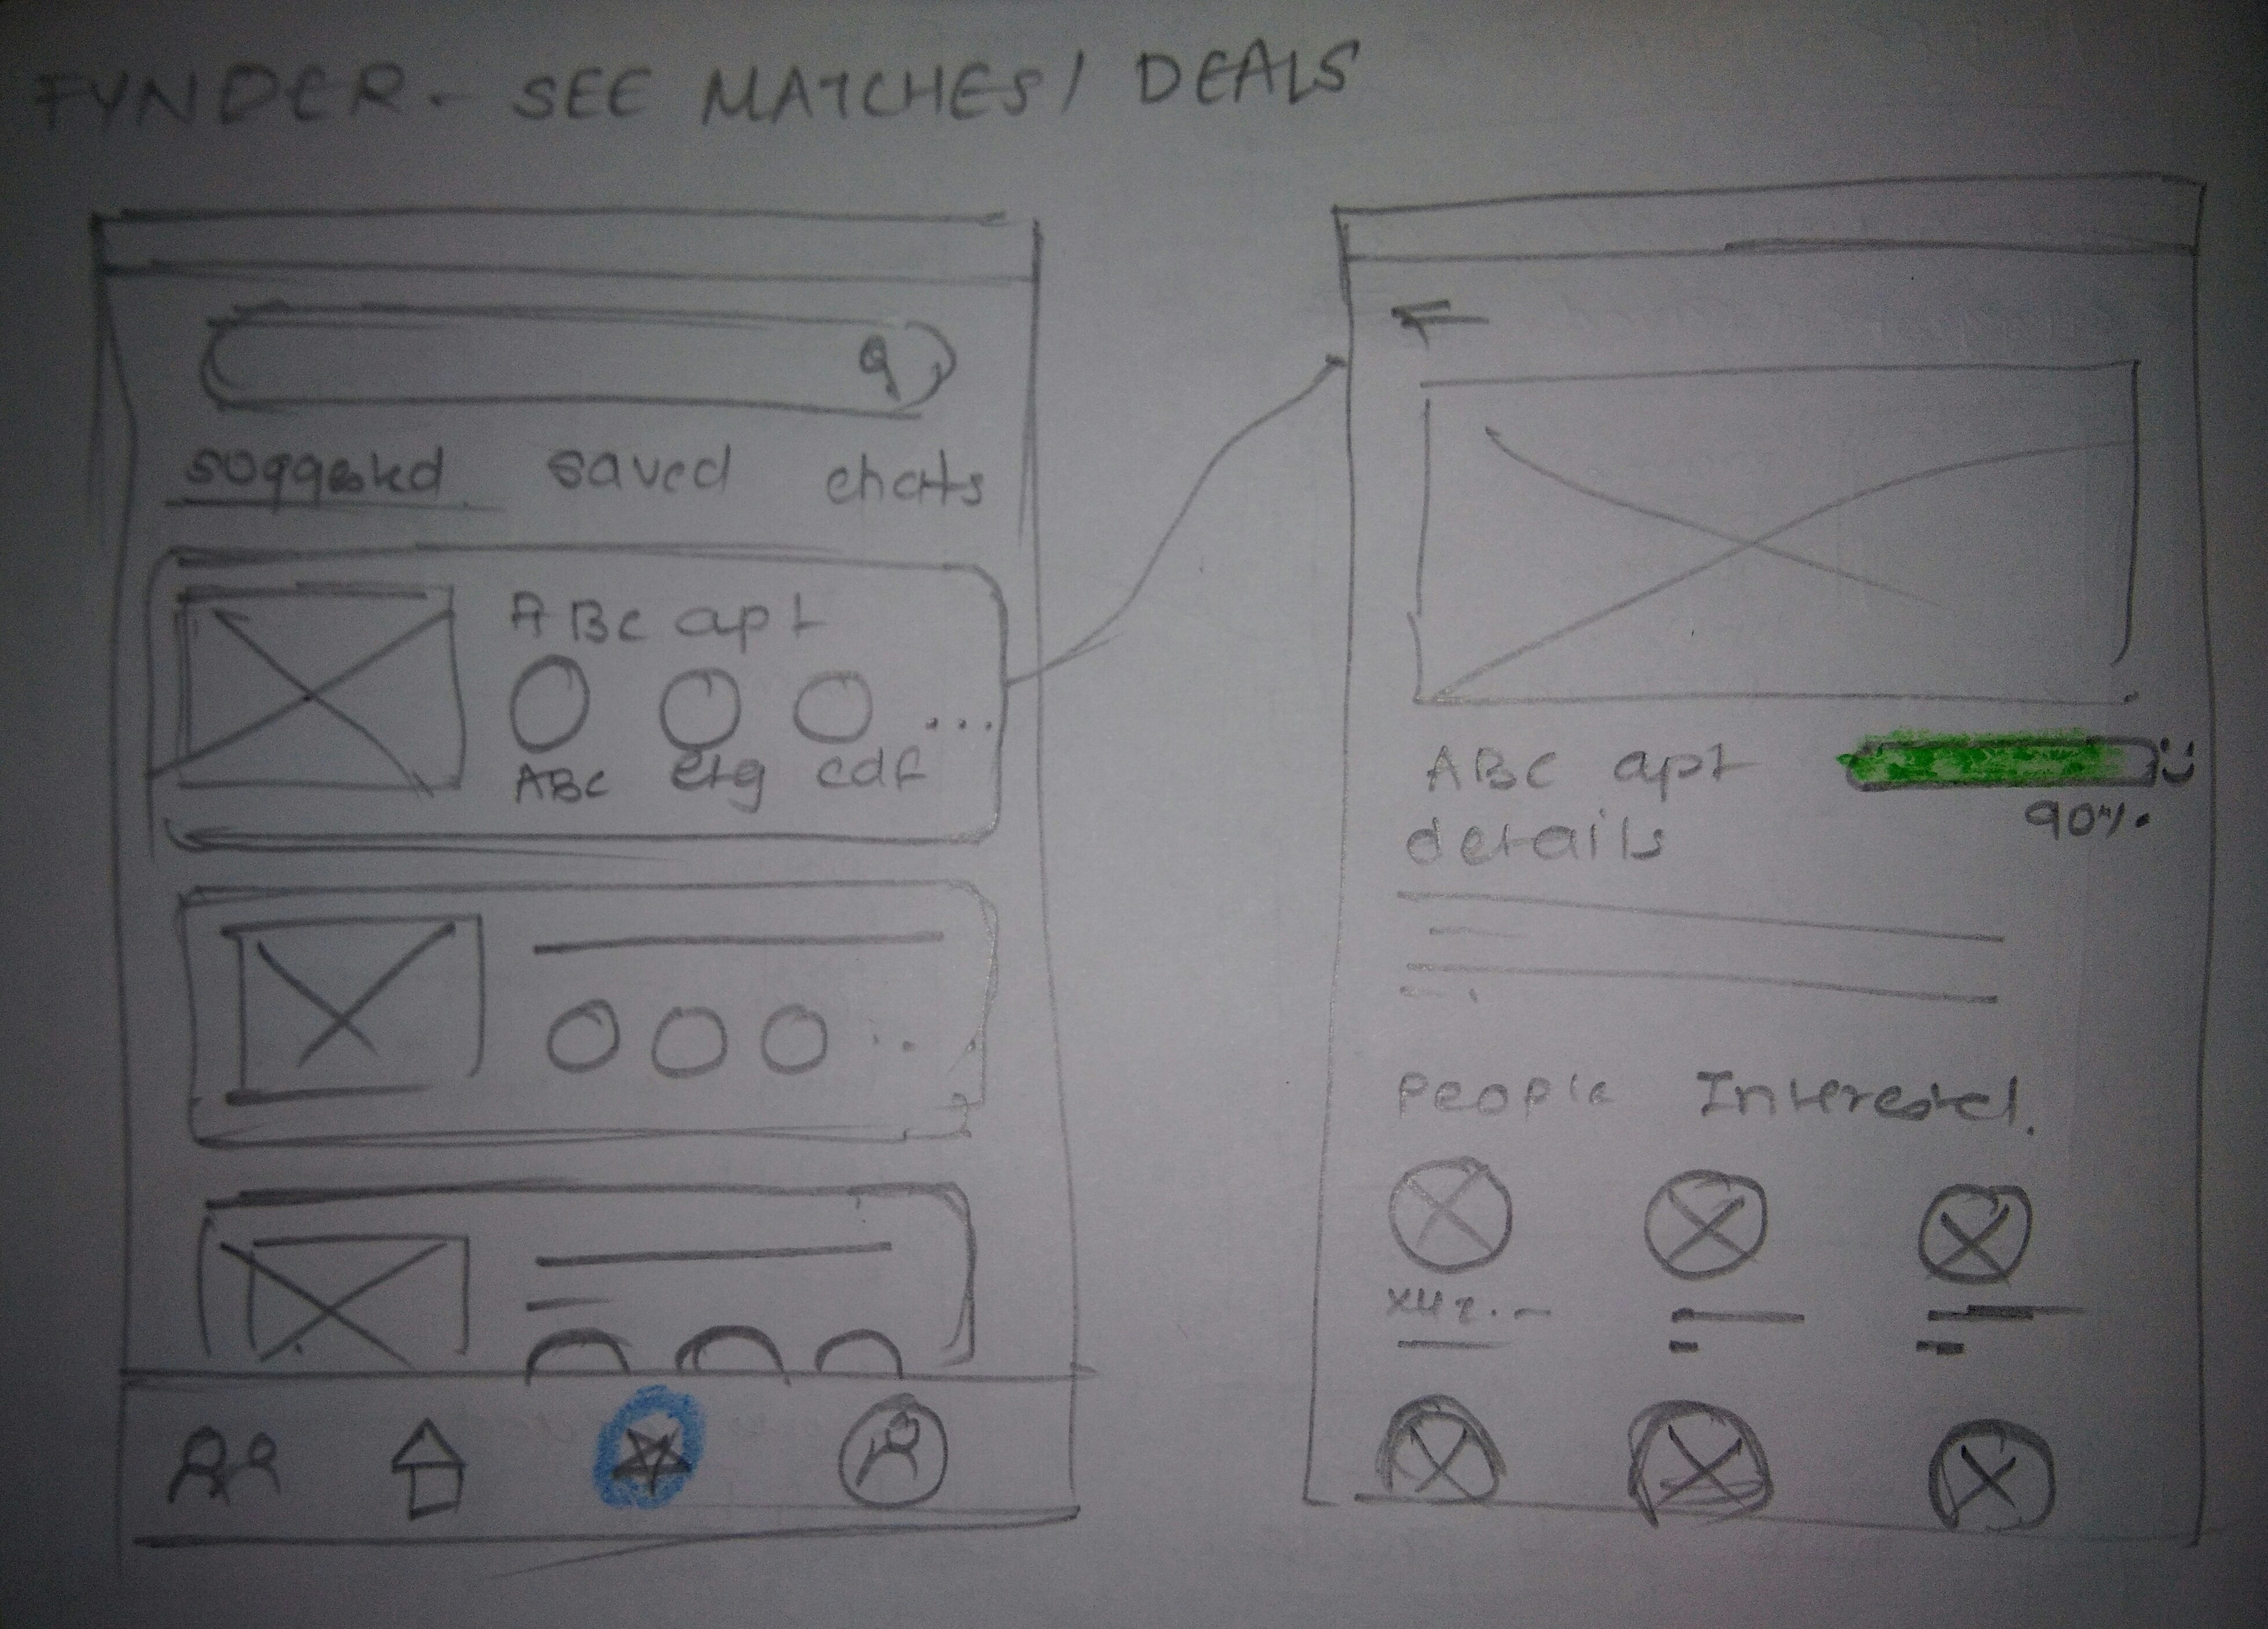 FYNDER - SEE MATCHES / DEALS
suggested saved chats
ABC apt
ABC efg cdf
ABC apt
details
90%
People Interested.
xyz. -